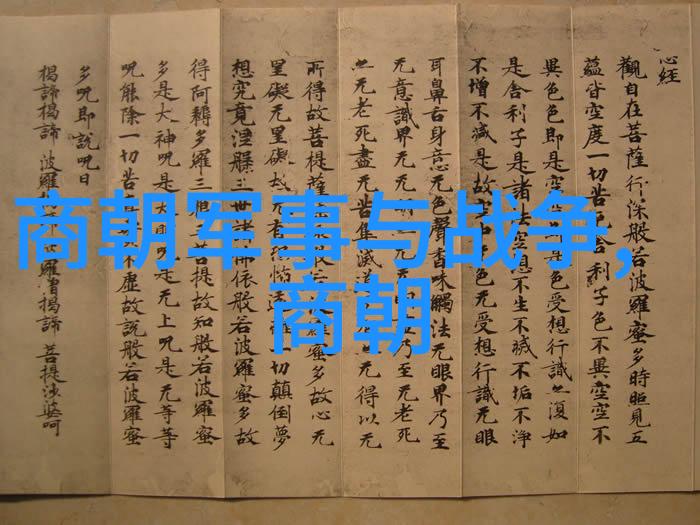 商朝军事与战争,
商朝
心经
觀自在菩薩行深般若波羅蜜多時照見五
蘊皆空度一切苦厄舍利子色不異空空不
異色色即是空空即是色受想行識亦復如
是舍利子是諸法空想不生不滅不垢不淨
不增不減是故空中无色无受想行識无眼
耳鼻舌身意无色聲香味觸法无眼界乃至
无意識界无无明亦无无明乃至无老死
亦无老死盡无苦集滅道无得以无
所得故菩提薩般若波羅蜜多故心无
罣礙无罣礙故无有恐怖遠離一切顛倒夢
想究竟涅槃三世諸佛依般若波羅蜜多故
得阿耨多羅三藐三菩提故知般若波羅蜜
多是大神呪是大明呪是无上呪是无等等
呪能除一切苦不虛故說般若波羅蜜
多呪即說呪曰
揭諦揭諦 波羅揭諦 波羅僧揭諦 菩提莎婆呵